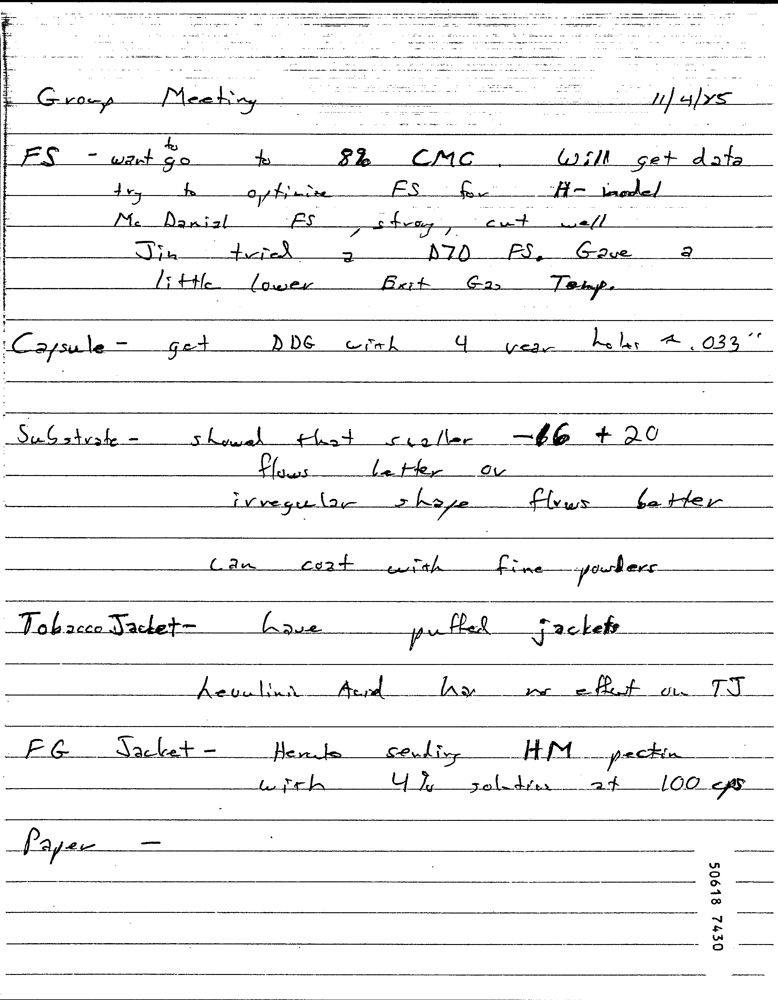 Group Meeting 11/4/85
FS - want to go to 8% CMC. Will get data
try to optimize FS for H- model
Mc Danial FS, strong, cut well
Jim tried a D70 FS. Gave a
little lower Exit Gas Temp.
Capsule - get DDG with 4 rear holes .033"
Substrate - showed that smaller -16 + 20
flows better or
irregular shape flows better
can coat with fine powders
Tobacco Jacket - have puffed jackets
Levulinic Acid has no effect on TJ
FG Jacket - sending HM pectin
with 4% solution at 100 cps
Paper -
50618 7430